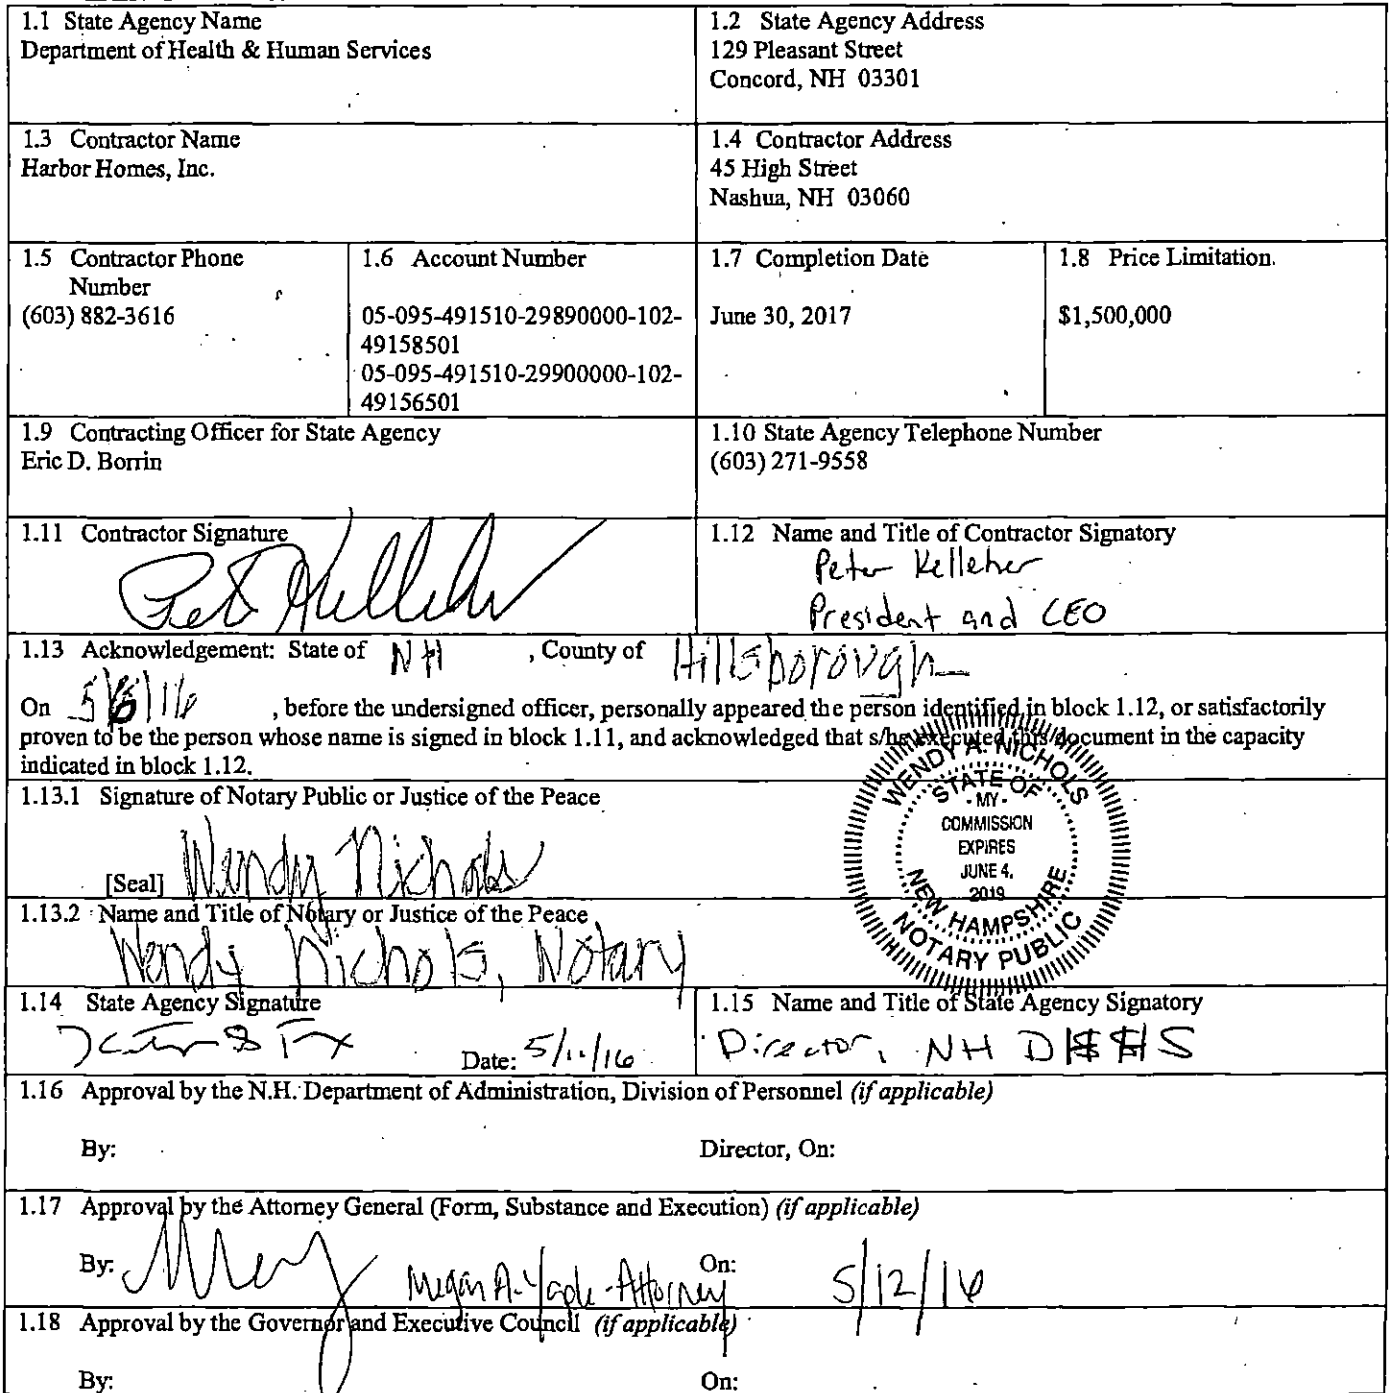 1.1 State Agency Name
Department of Health & Human Services
1.2 State Agency Address
129 Pleasant Street
Concord, NH 03301
1.3 Contractor Name
Harbor Homes, Inc.
1.4 Contractor Address
45 High Street
Nashua, NH 03060
1.5 Contractor Phone
Number
(603) 882-3616
1.6 Account Number
05-095-491510-29890000-102-
49158501
05-095-491510-29900000-102-
49156501
1.7 Completion Date
June 30, 2017
1.8 Price Limitation.
$1,500,000
1.9 Contracting Officer for State Agency
Eric D. Borrin
1.10 State Agency Telephone Number
(603) 271-9558
1.11 Contractor Signature
Peter Kelleher
1.12 Name and Title of Contractor Signatory
Peter Kelleher
President and CEO
1.13 Acknowledgement: State of NH , County of Hillsborough
On 5/6/16 , before the undersigned officer, personally appeared the person identified in block 1.12, or satisfactorily
proven to be the person whose name is signed in block 1.11, and acknowledged that s/he executed this document in the capacity
indicated in block 1.12.
1.13.1 Signature of Notary Public or Justice of the Peace
[Seal] Wendy Nichols
WENDY A. NICHOLS
STATE OF
- MY -
COMMISSION
EXPIRES
JUNE 4,
2019
NEW HAMPSHIRE
NOTARY PUBLIC
1.13.2 Name and Title of Notary or Justice of the Peace
Wendy Nichols, Notary
1.14 State Agency Signature
Date: 5/11/16
1.15 Name and Title of State Agency Signatory
Director, NH DHHS
1.16 Approval by the N.H. Department of Administration, Division of Personnel (if applicable)
By: Director, On:
1.17 Approval by the Attorney General (Form, Substance and Execution) (if applicable)
By: Megan A. Yaple - Attorney On: 5/12/16
1.18 Approval by the Governor and Executive Council (if applicable)
By: On: